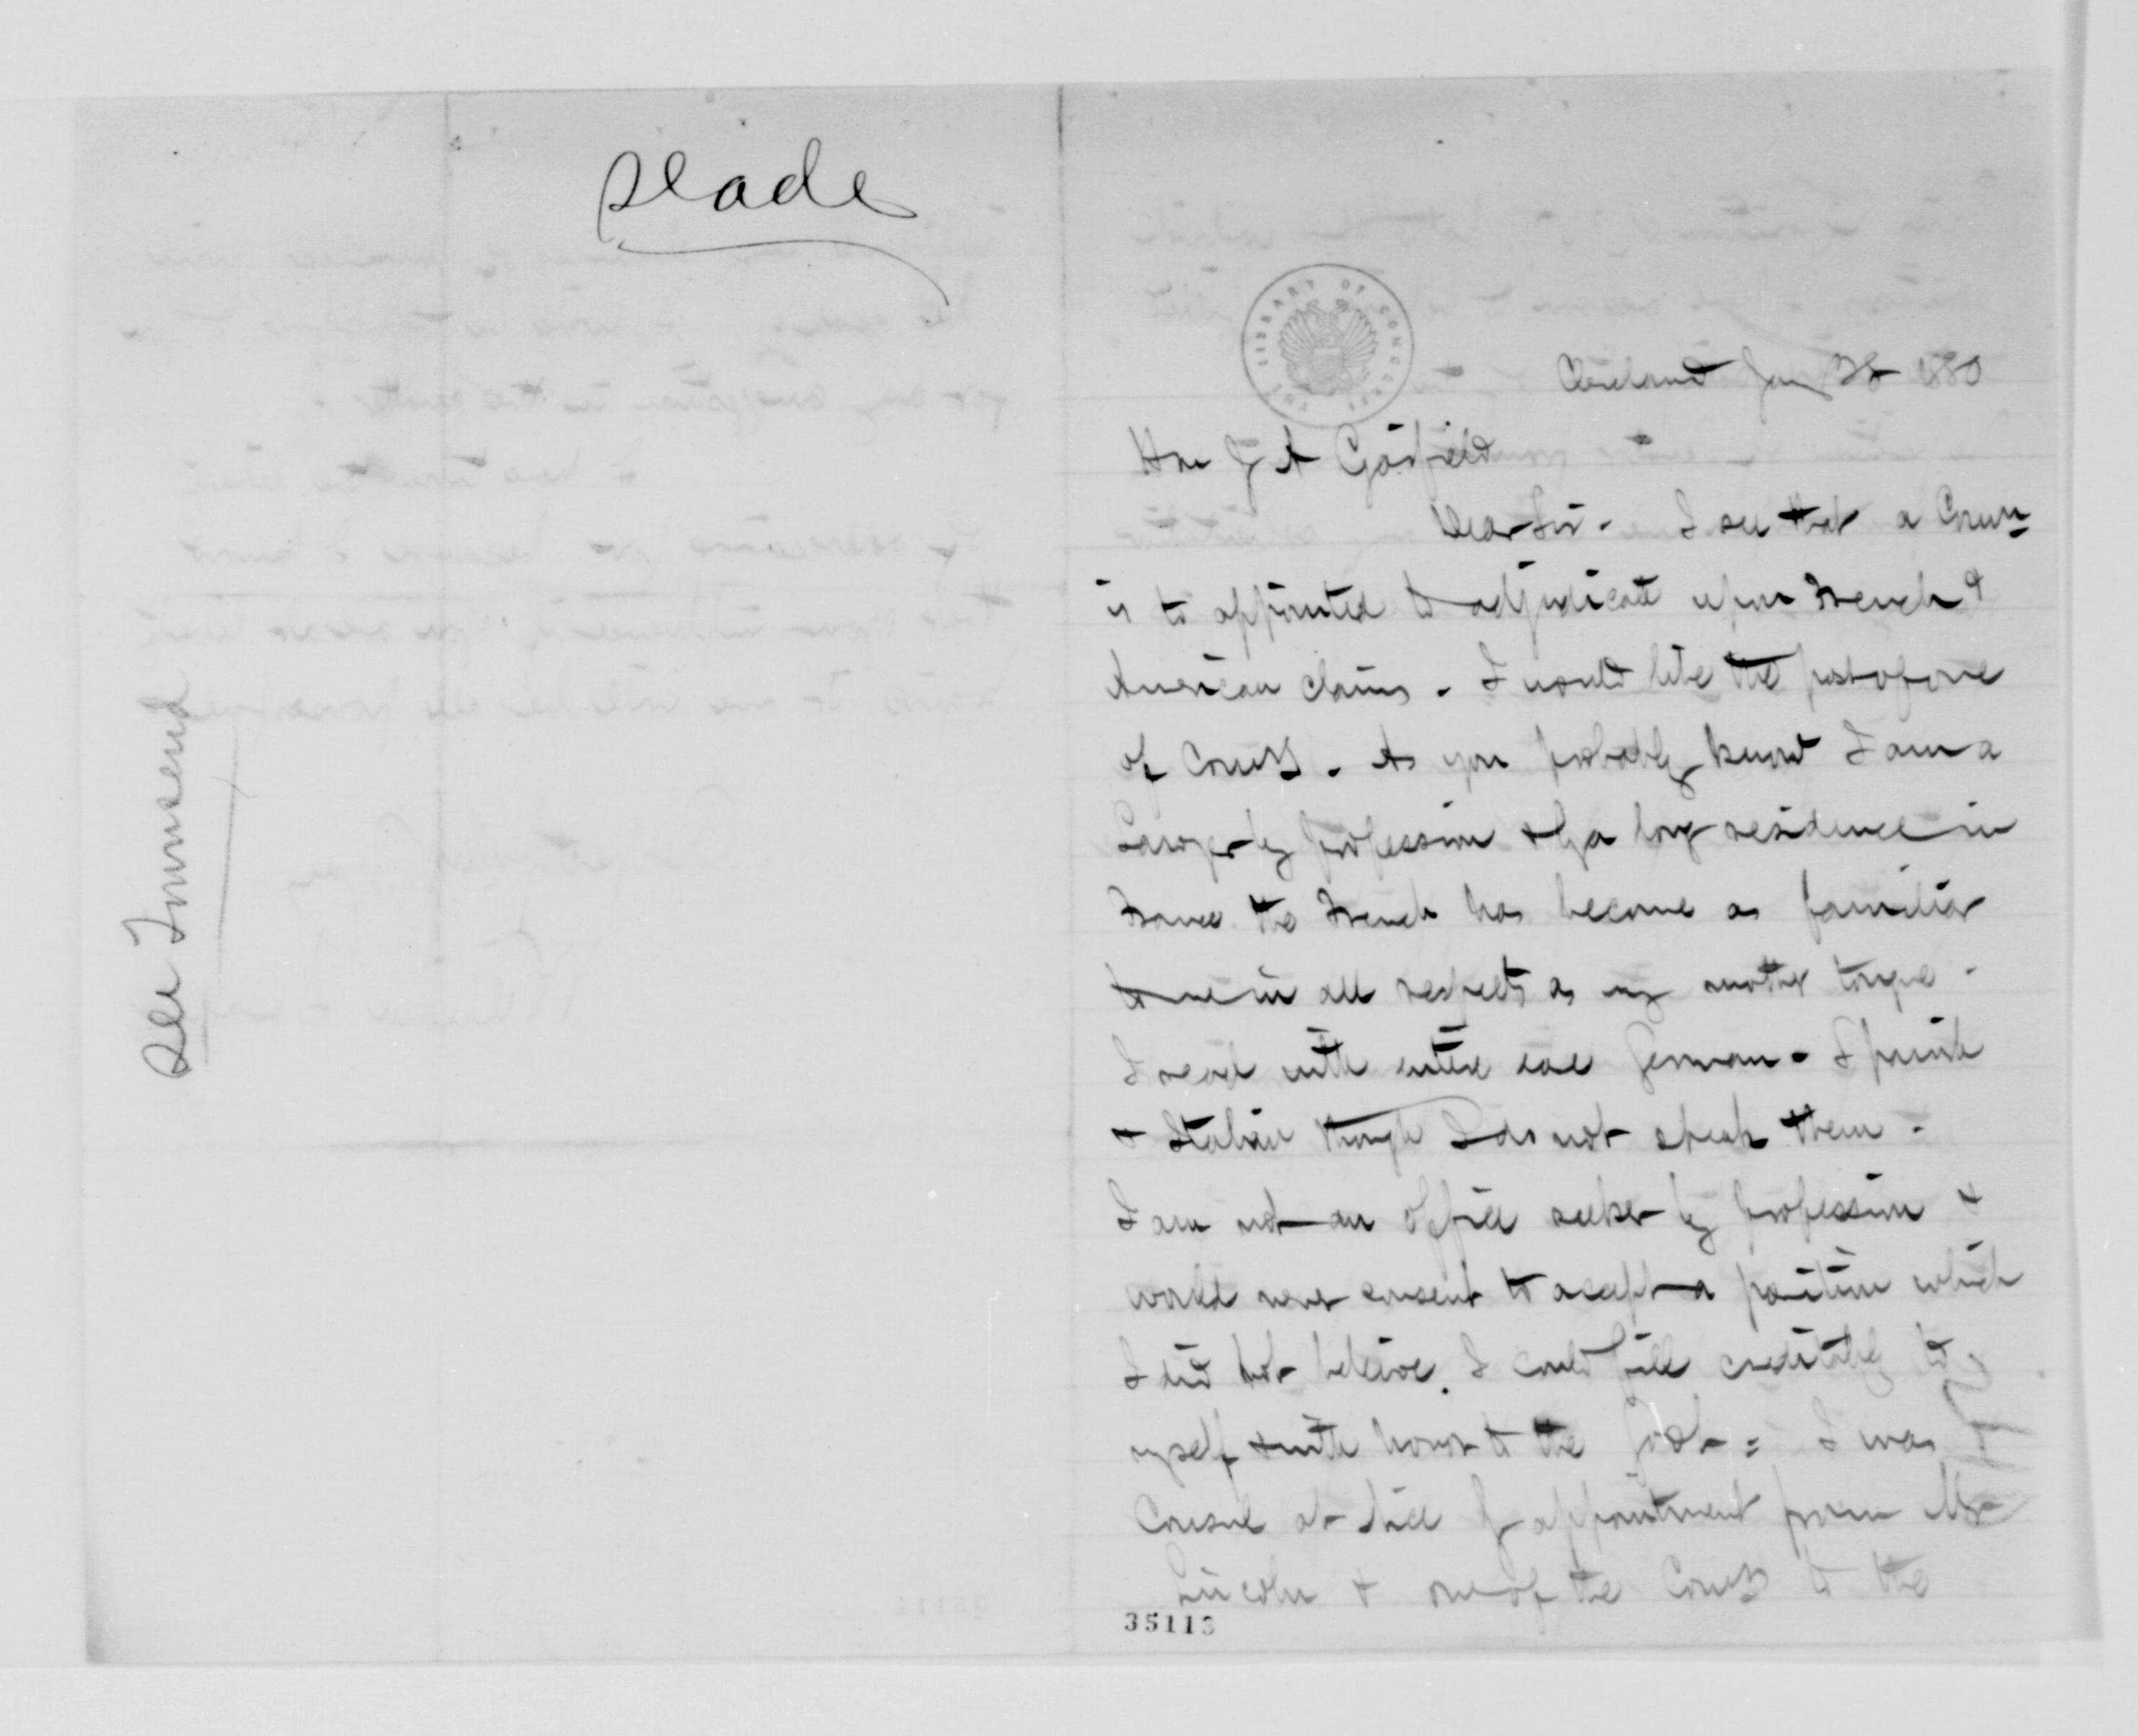 Slade
See Townsend
THE LIBRARY OF CONGRESS
Cleveland Jany 28 1880
Hon J A Garfield
Dear Sir - I see that a Comn
is to appointed to adjudicate upon French &
American claims. I would like the post of one
of Comrs. As you probably know I am a
Lawyer by profession & by a long residence in
France the French has become as familiar
to me in all respects as my mother tongue.
I read with entire ease German - Spanish
& Italian though I do not speak them.
I am not an office seeker by profession &
would never consent to accept a position which
I did not believe I could fill creditably to
myself & with honor to the Govt = I was
Consul at Nice by appointment from Mr
Lincoln & one of the Comrs to the
35113